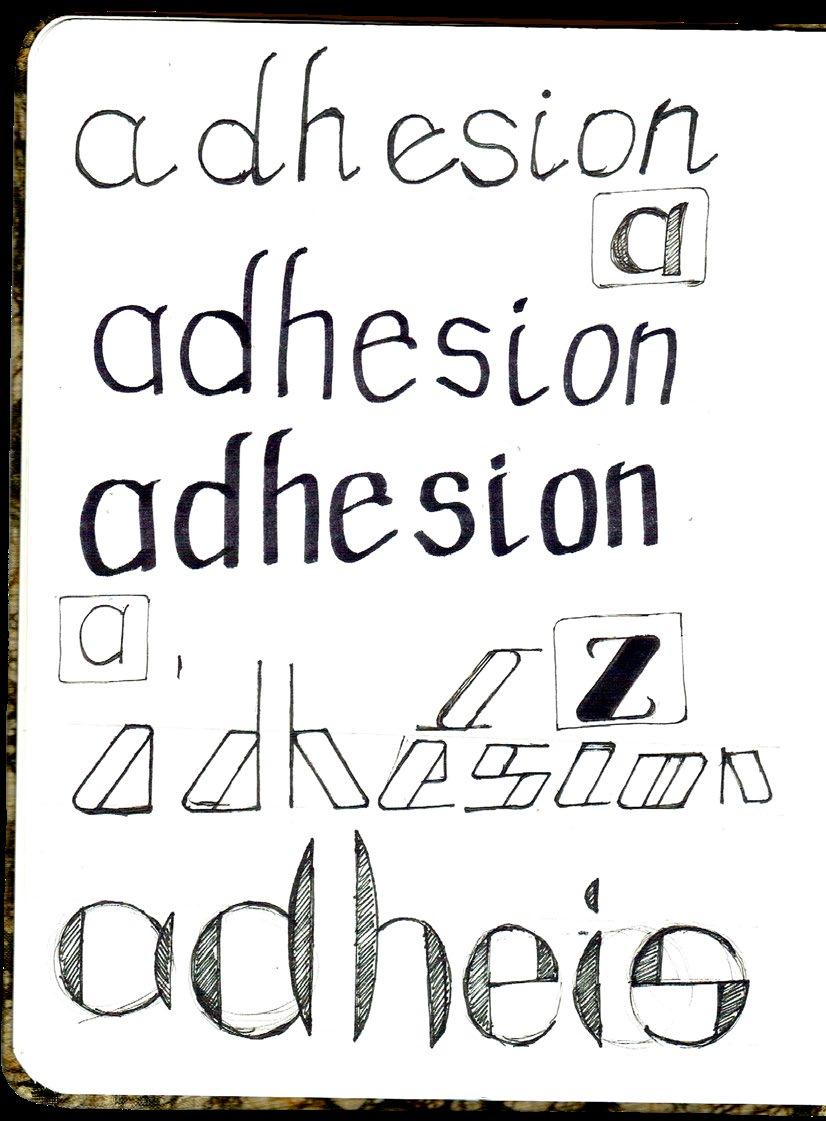 adhesion
a
adhesion
adhesion
a
z
adhesion
adheis